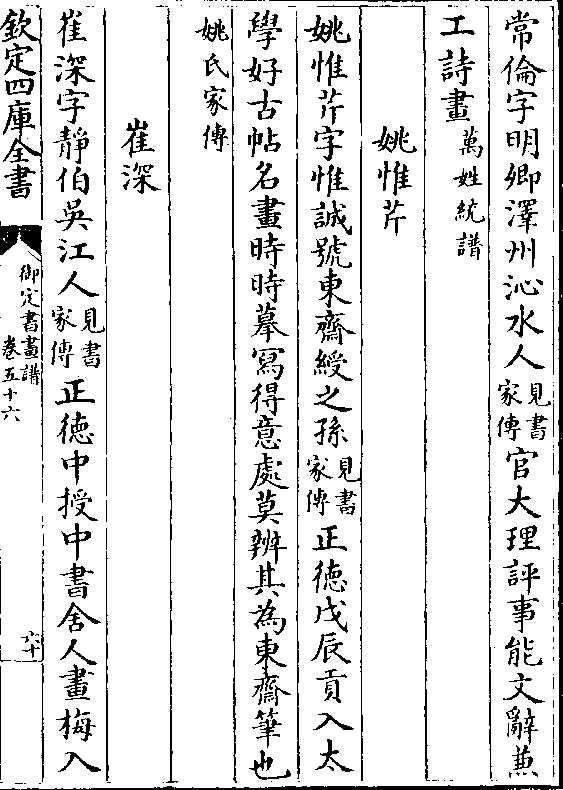 常倫字明卿澤州沁水人見書家傳官大理評事能文辭兼
工詩畫萬姓統譜
姚惟芹
姚惟芹字惟誠號東齋綬之孫見書家傳正德戊辰貢入太
學好古帖名畫時時摹寫得意處莫辨其為東齋筆也
姚氏家傳
崔深
崔深字靜伯吳江人見書家傳正德中授中書舍人畫梅入
欽定四庫全書
御定書畫譜
卷五十六
六十